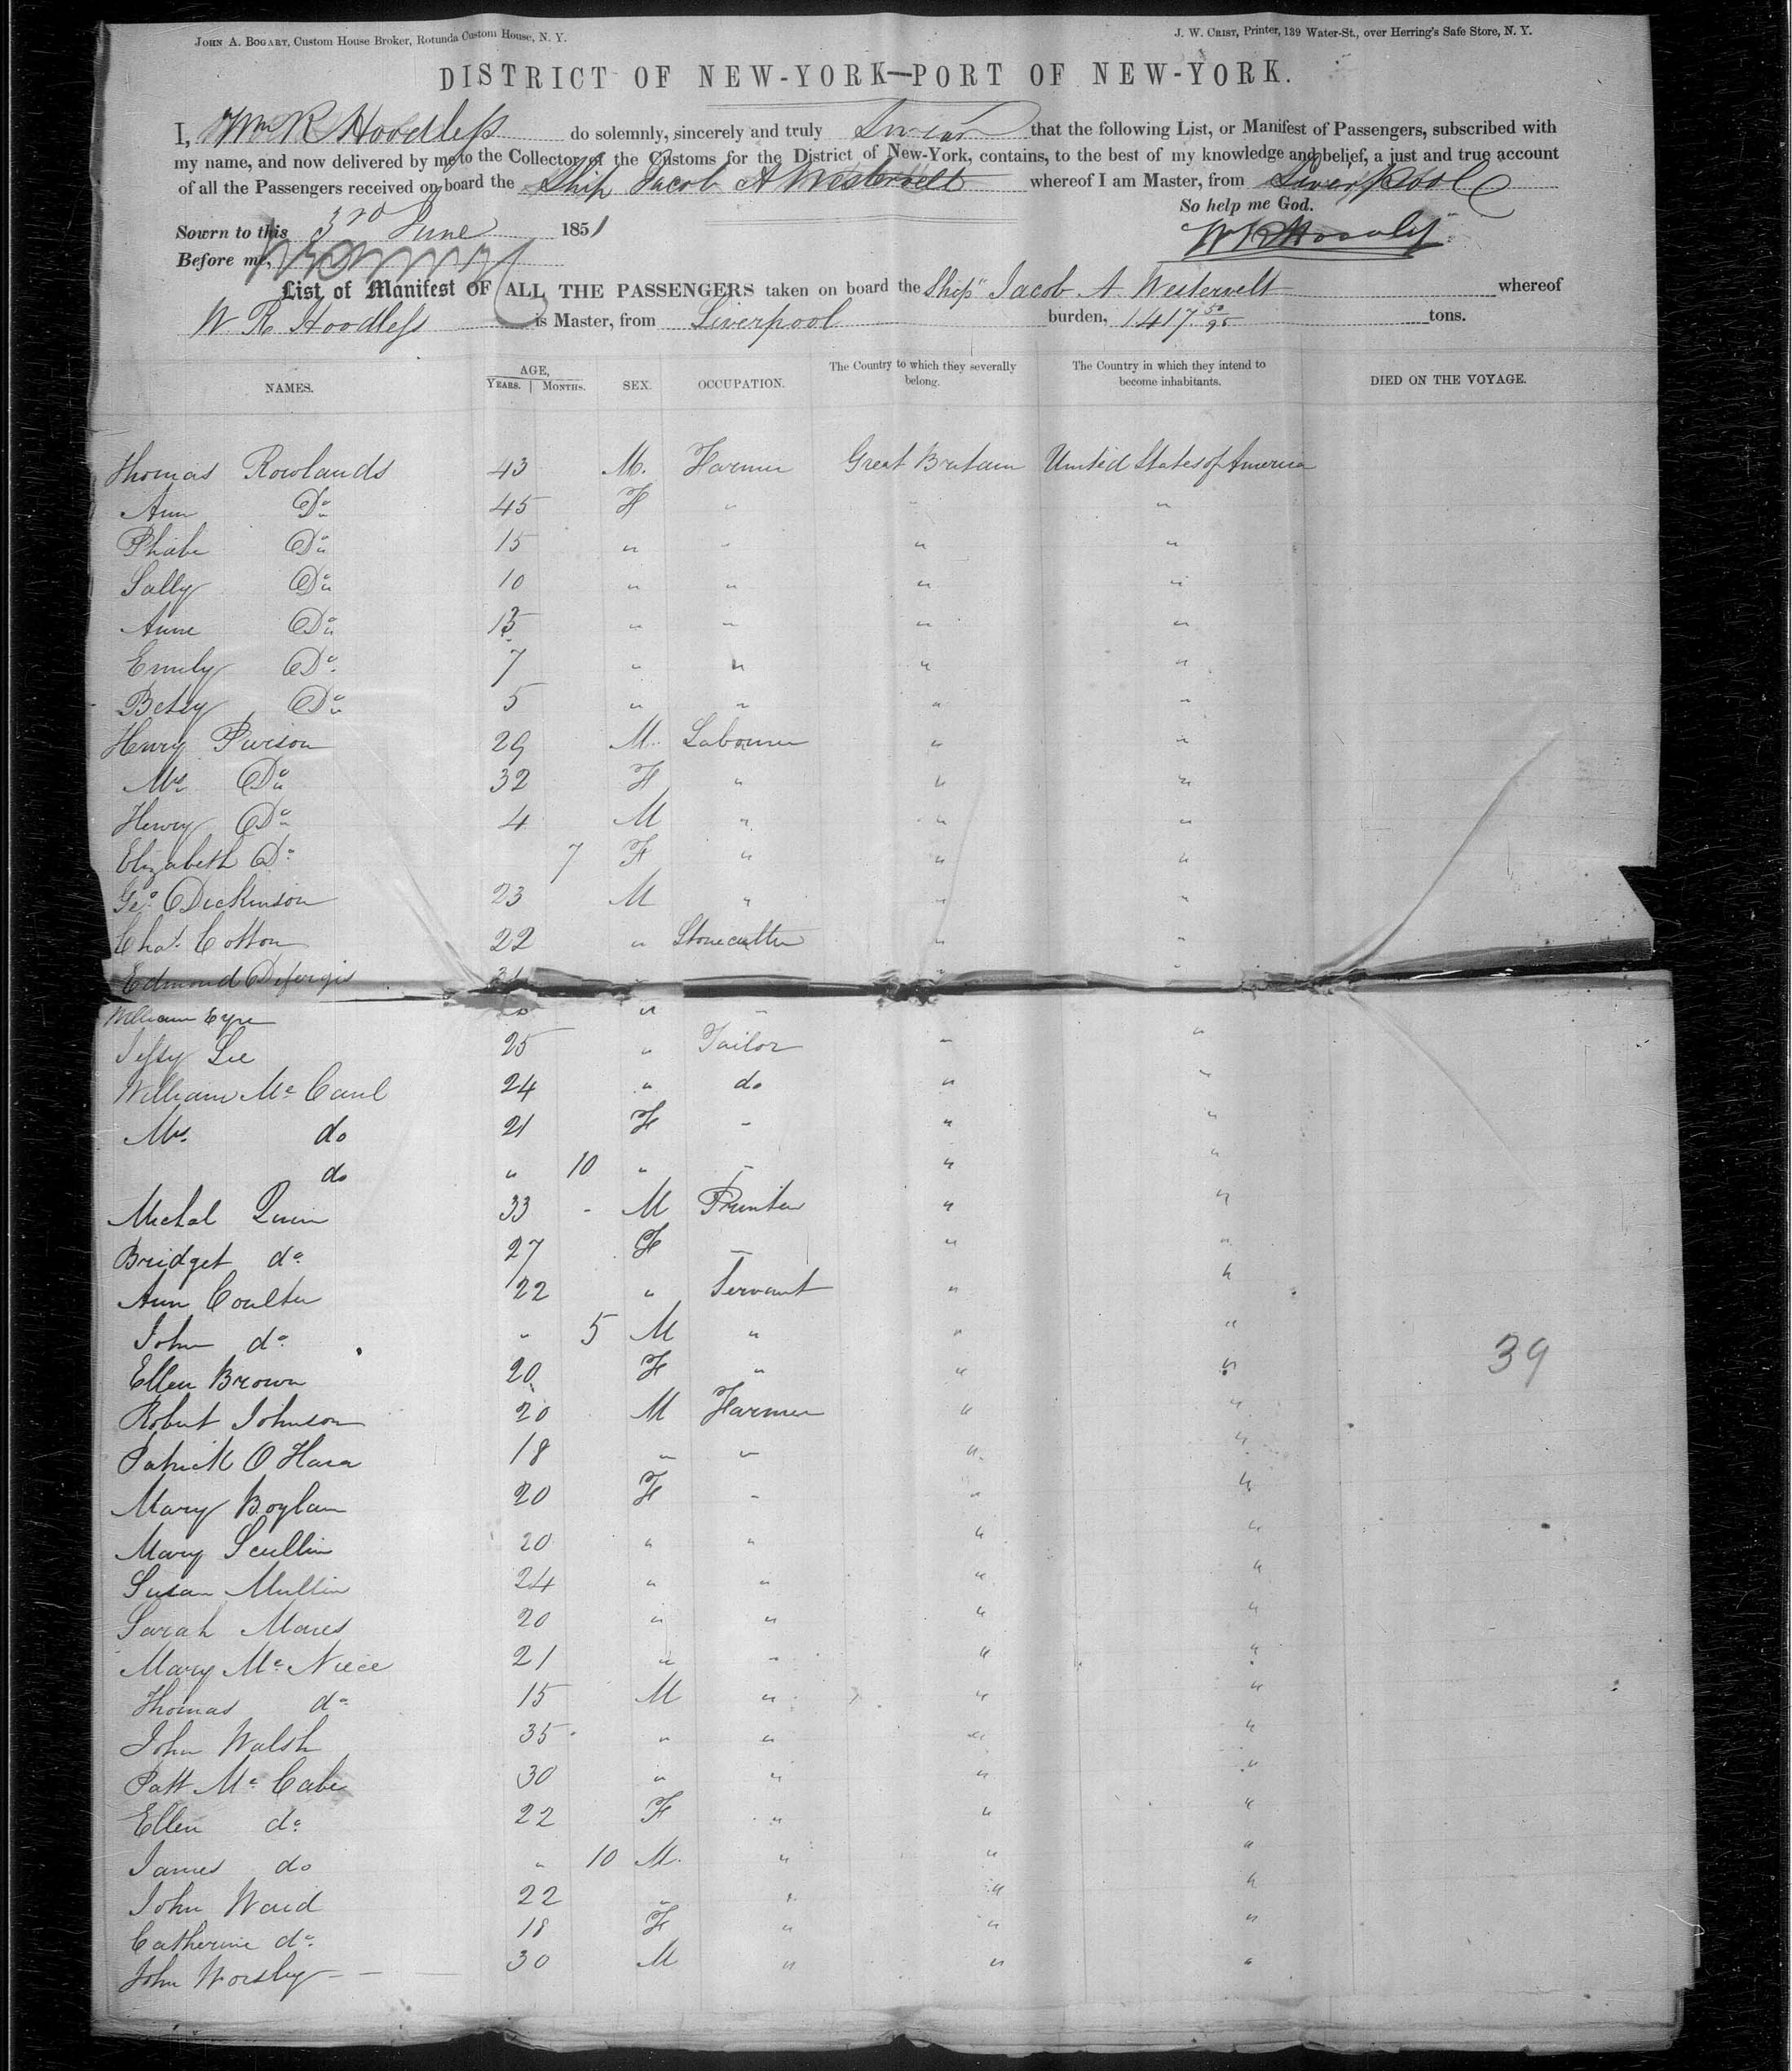 JOHN A. BOGART, Custom House Broker, Rotunda Custom House, N. Y.
J. W. CRIST, Printer, 139 Water-St., over Herring's Safe Store, N. Y.
DISTRICT OF NEW-YORK—PORT OF NEW-YORK.
I, Wm R Hoodless do solemnly, sincerely and truly Swear that the following List, or Manifest of Passengers, subscribed with
my name, and now delivered by me to the Collector of the Customs for the District of New-York, contains, to the best of my knowledge and belief, a just and true account
of all the Passengers received on board the Ship Jacob A Westervelt whereof I am Master, from Liverpool
So help me God.
Sowrn to this 3rd June 1851
W R Hoodless
Before me,
List of Manifest OF ALL THE PASSENGERS taken on board the Ship "Jacob A. Westervelt whereof
W R Hoodless is Master, from Liverpool burden, 1417 50/95 tons.
NAMES. AGE, YEARS. MONTHS. SEX. OCCUPATION. The Country to which they severally belong. The Country in which they intend to become inhabitants. DIED ON THE VOYAGE.
Thomas Rowlands 43 M. Farmer Great Britain United States of America
Ann Do 45 F " " "
Phabe Do 15 " " " "
Sally Do 10 " " " "
Anne Do " " " "
Emily Do 7 " " " "
Betsy Do 5 " " " "
Henry Pierson 29 M Labourer " "
Mrs Do 32 F " " "
Henry Do 4 M " " "
Elizabeth Do 7 F " " "
Geo. Dickinson 23 M " " "
Chas. Cotton 22 " Stonecutter " "
Edmond " "
William Eyre " "
Lee 25 " Tailor " "
William Mc Caul 24 " do " "
Mrs. do 21 F " " "
do " 10 " " " "
Michal Quin 33 - M Printer " "
Bridget do 27 F — " "
Ann Coulter 22 " Servant " "
John do " 5 M " " "
Ellen Brown 20 F " " "
39
Robert Johnson 20 M Farmer " "
Patrick O Hara 18 " " " "
Mary Boylan 20 F " " "
Mary Scullin 20 " " " "
Susan Mullin 24 " " " "
Sarah Mares 20 " " " "
Mary Mc Niece 21 " " " "
Thomas do 15 M " " "
John Walsh 35 " " " "
Patt Mc Cabe 30 " " " "
Ellen do 22 F " " "
James do " 10 M. " " "
John Ward 22 " " " "
Catherine do 18 F " " "
John Worsley 30 M " " "